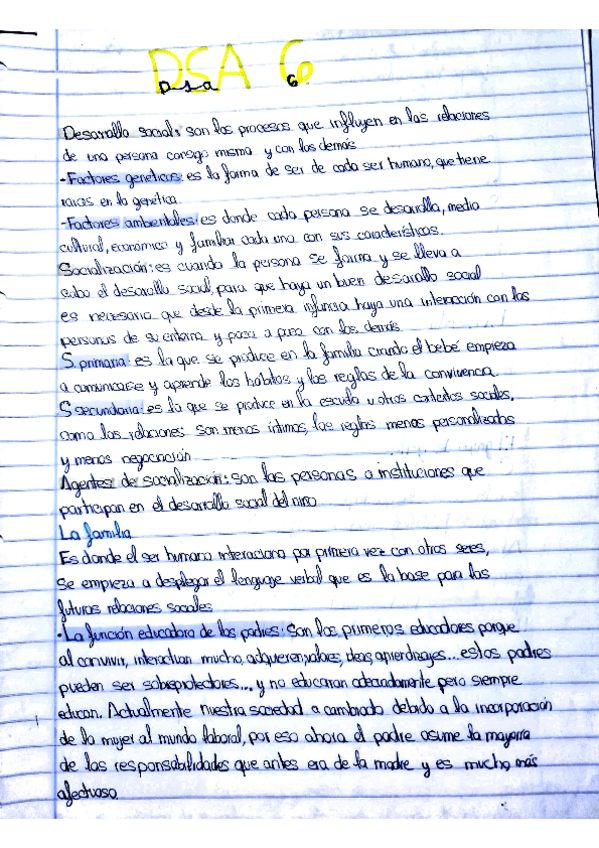 DSA 6
Dsa 6
Desarrollo social: son los procesos que influyen en las relaciones
de una persona consigo misma y con los demás
-Factores geneticos: es la forma de ser de cada ser humano, que tiene
raices en la genética.
-Factores ambientales: es donde cada persona se desarrolla, medio
cultural, economico y familiar cada uno con sus caracteristicas.
Socialización: es cuando la persona se forma y se lleva a
cabo el desarrollo social, para que haya un buen desarollo social
es necesario que desde la primera infancia haya una interacción con las
personas de su entorno y poco a poco con los demás.
S. primaria: es la que se produce en la familia cuando el bebé empieza
a comunicarse y aprende los habitos y las reglas de la convivencia.
S secundaria: es la que se produce en la escuela u otros contextos sociales,
como las relaciones son menos intimas, las reglas menos personalizadas
y menos negociación
Agentes de socialización: son las personas o instituciones que
participan en el desarrollo social del niño
La familia
Es donde el ser humano interacciona por primera vez con otros seres,
Se empieza a desplegar el lenguaje verbal que es la base para las
futuras relaciones sociales
-La función educadora de los padres: Son los primeros educadores porque
al convivir, interactuan mucho, adquieren valores, ideas, aprendizajes... estos padres
pueden ser sobreprotectores..., y no educaran adecuadamente pero siempre
educan. Actualmente nuestra sociedad a cambiado debido a la incorporación
de la mujer al mundo laboral, por eso ahora el padre asume la mayoria
de las responsabilidades que antes era de la madre y es mucho más
afectuoso.